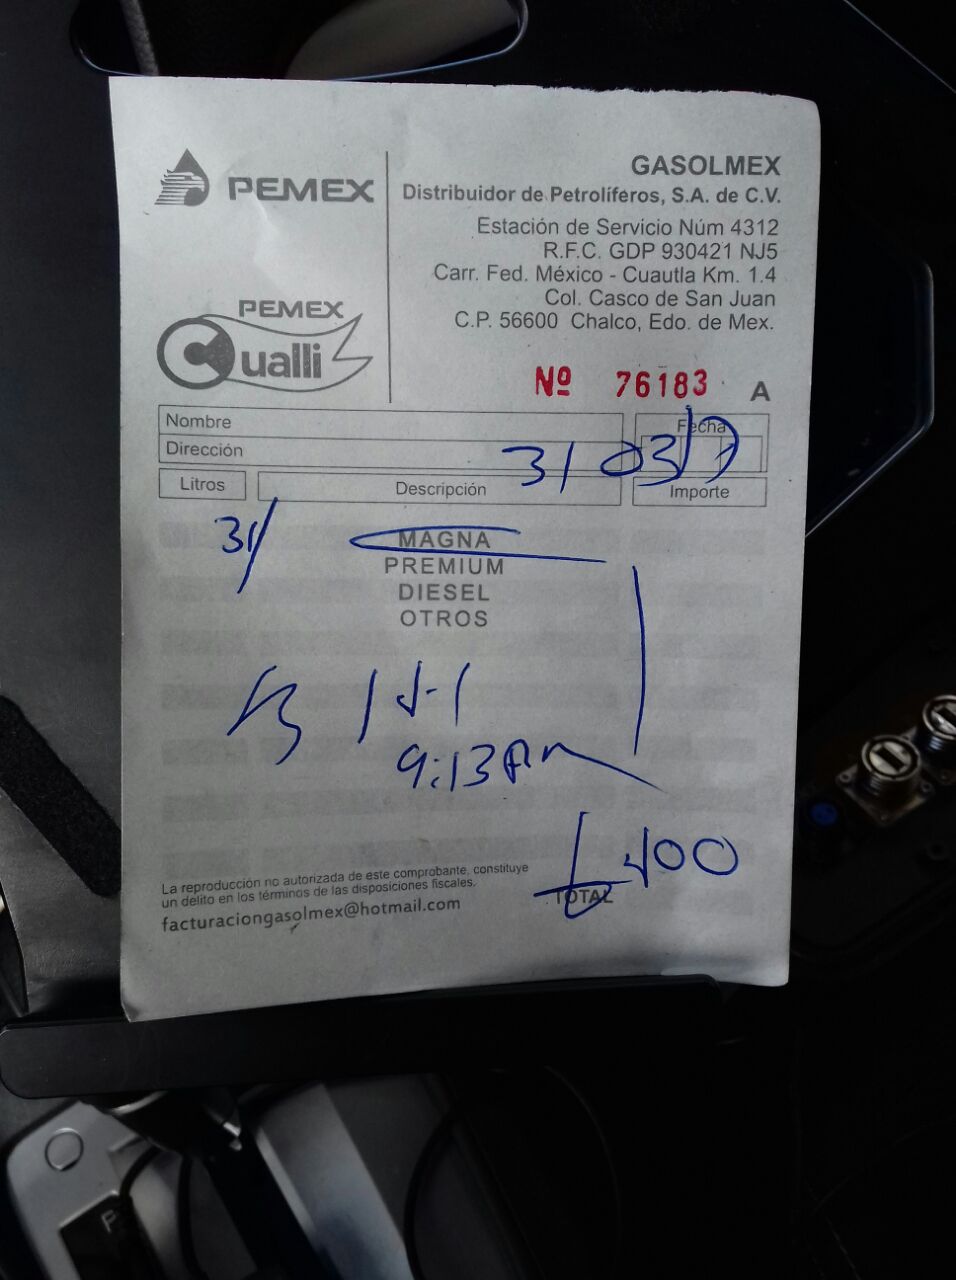 PEMEX
GASOLMEX
Distribuidor de Petrolíferos, S.A. de C.V.
Estación de Servicio Núm 4312
R.F.C. GDP 930421 NJ5
Carr. Fed. México - Cuautla Km. 1.4
Col. Casco de San Juan
C.P. 56600 Chalco, Edo. de Mex.
PEMEX
Cualli
Nº 76183 A
Nombre
Fecha
Dirección
31 03/17
Litros Descripción Importe
31/
MAGNA
PREMIUM
DIESEL
OTROS
9:13 Am
400
La reproducción no autorizada de este comprobante, constituye
un delito en los términos de las disposiciones fiscales.
TOTAL
facturaciongasolmex@hotmail.com
P